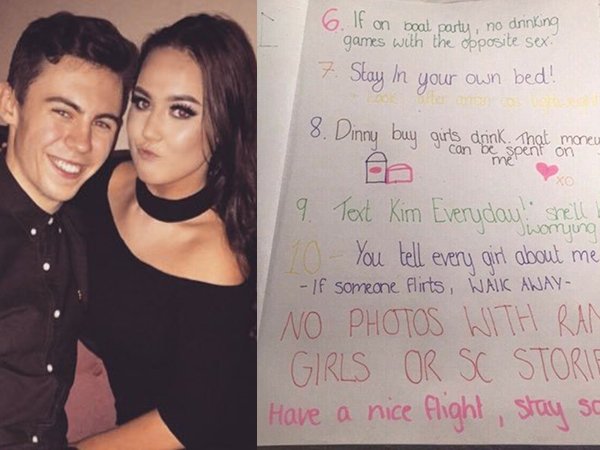 6. If on boat party, no drinking
games with the opposite sex.
7. Stay In your own bed!
8. Dinny buy girls drink. That money
can be spent on
me
XO
9. Text Kim Everyday! she'll b
worrying
10- You tell every girl about me
- If someone flirts, WALK AWAY-
NO PHOTOS WITH RAN
GIRLS OR SC STORIE
Have a nice flight, stay sa